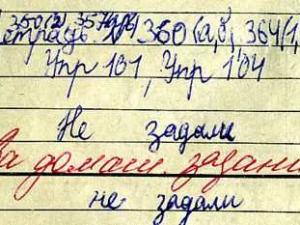 тетрадь № 360 (а, б), 364 (1,
Упр 101, Упр 104
Не задали
За домаш. задани
не задали